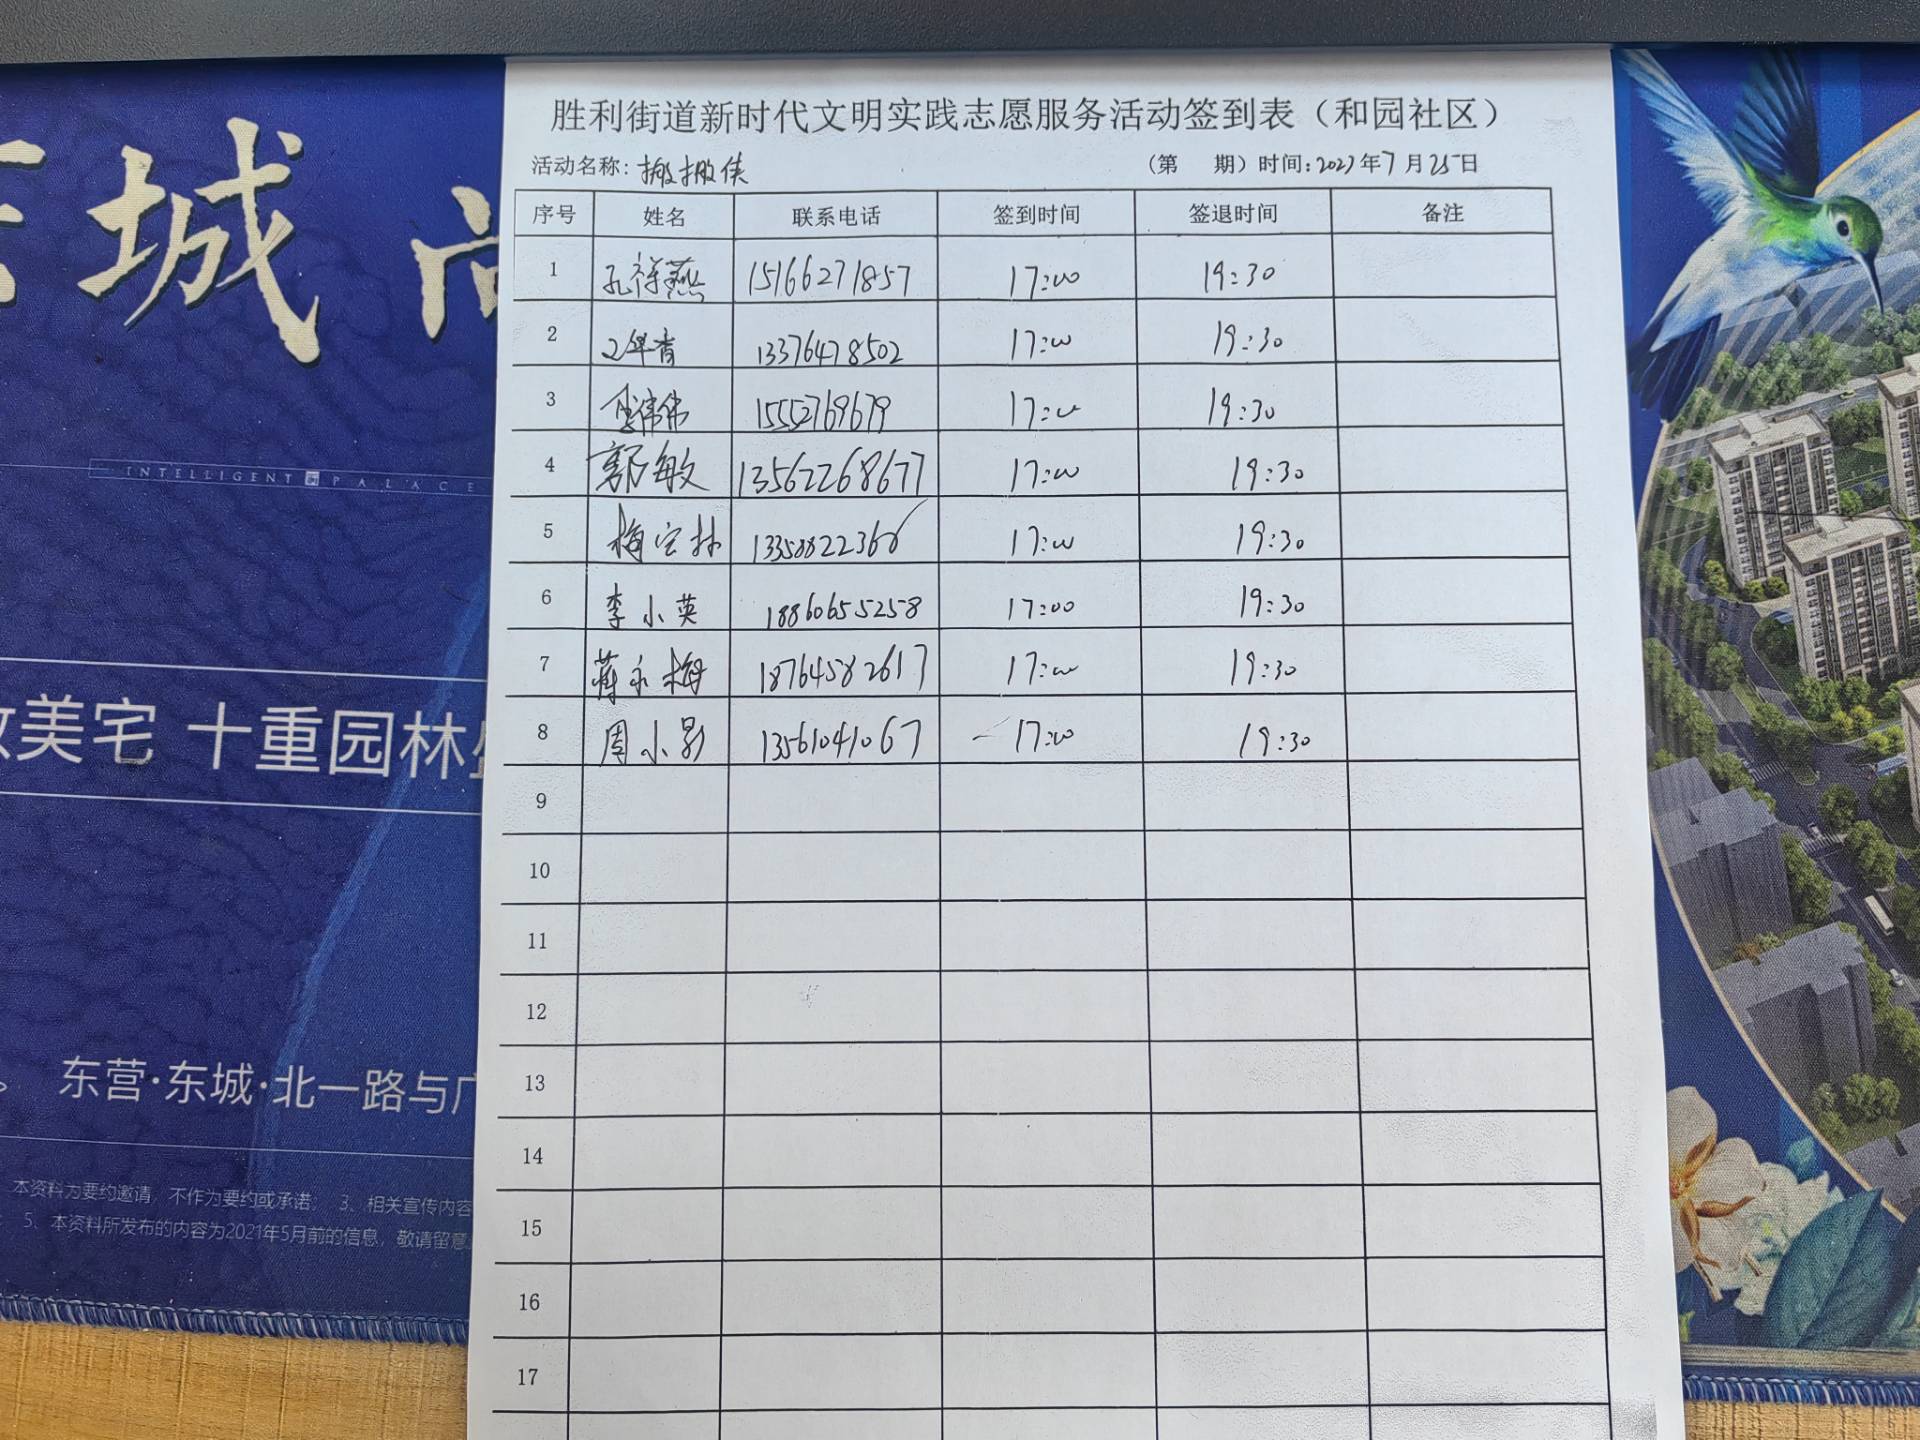 胜利街道新时代文明实践志愿服务活动签到表（和园社区）
活动名称：搬搬侠 （第 期）时间：2023年7月25日
序号 姓名 联系电话 签到时间 签退时间 备注
1 孔祥燕 15166271857 17:00 19:30
2 13376478502 17:00 19:30
3 伟伟 15552769679 17:00 19:30
4 郭敏 13562268677 17:00 19:30
5 梅宝林 13358822366 17:00 19:30
6 李小英 18860655258 17:00 19:30
7 蒋永梅 18764582617 17:00 19:30
8 周小影 13561041067 17:00 19:30
9
10
11
12
13
14
15
16
17
城
INTELLIGENT PALACE
美宅 十重园林
东营·东城·北一路与广
本资料为要约邀请，不作为要约或承诺； 3、相关宣传内容
5、本资料所发布的内容为2021年5月前的信息，敬请留意